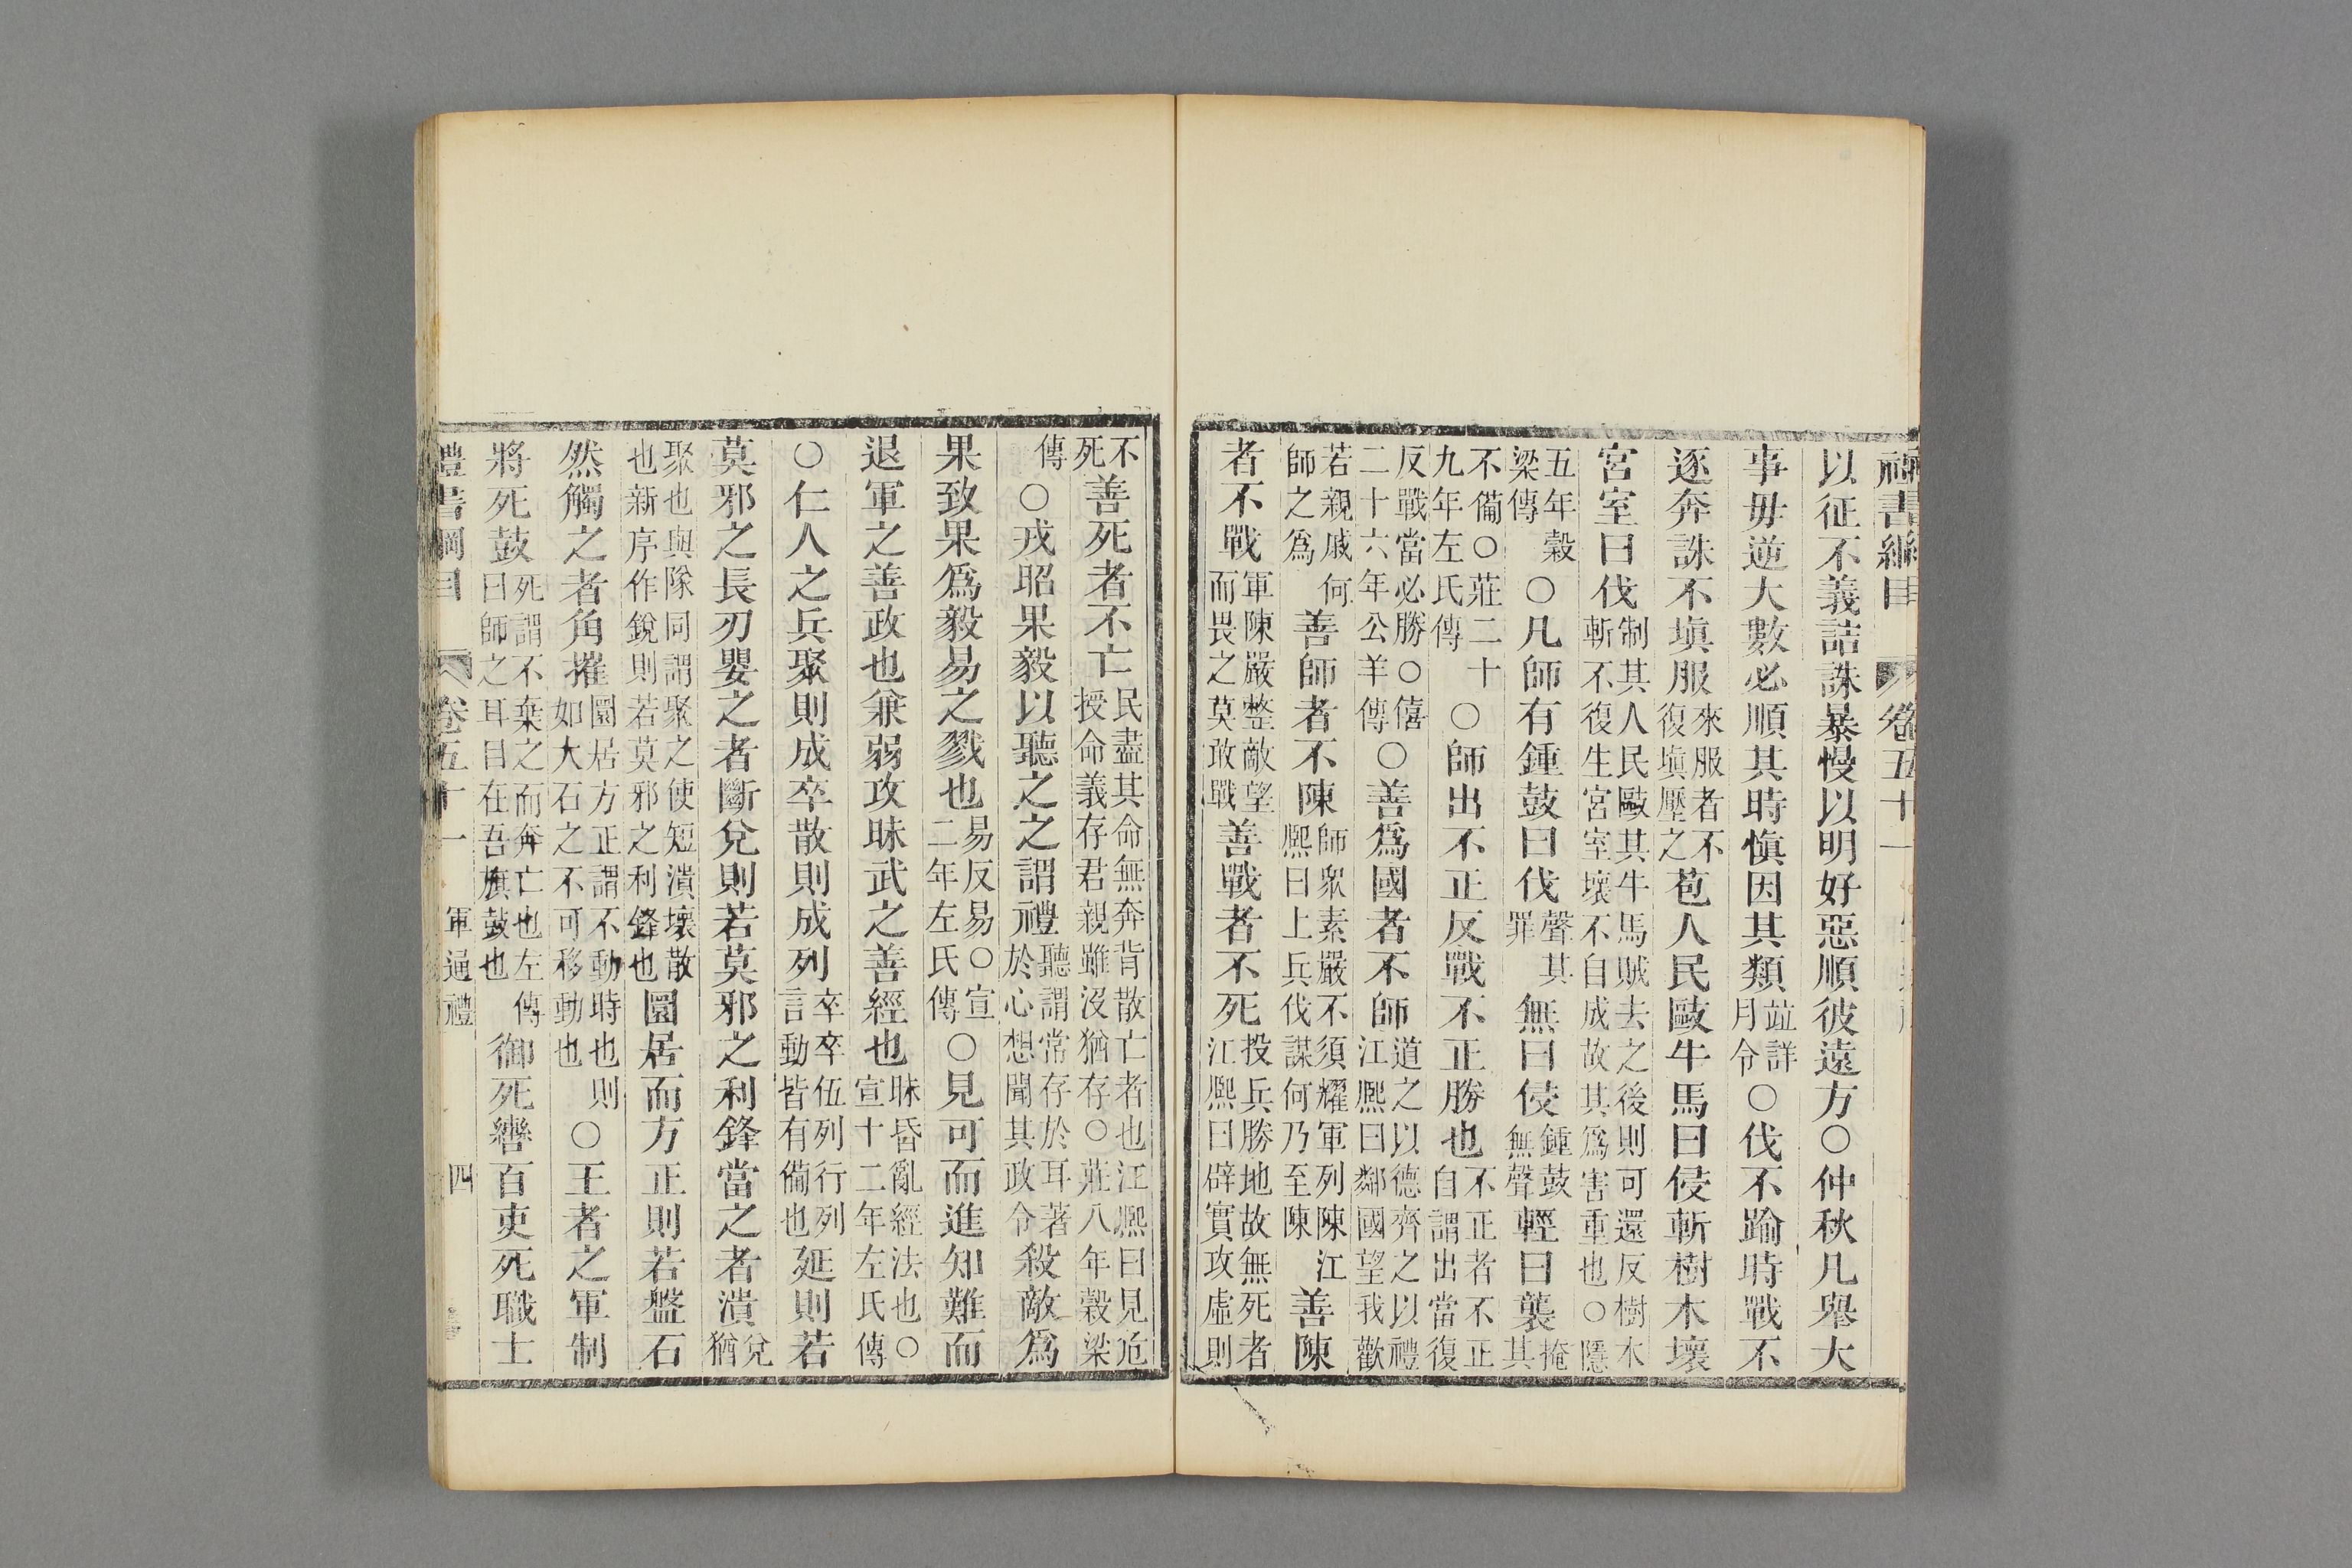 禮書綱目 卷五十一
以征不義詰誅暴慢以明好惡順彼遠方○仲秋凡舉大
事毋逆大數必順其時慎因其類竝詳月令○伐不踰時戰不
逐奔誅不塡服來服者不復塡壓之苞人民毆牛馬曰侵斬樹木壞
宮室曰伐制其人民毆其牛馬賊去之後則可還反樹木斬不復生宮室壞不自成故其爲害重也○隱
五年穀梁傳○凡師有鍾鼓曰伐聲其罪無曰侵鍾鼓無聲輕曰襲掩其
不備○莊二十九年左氏傳○師出不正反戰不正勝也不正者不正自謂出當復
反戰當必勝○僖二十六年公羊傳○善爲國者不師道之以德齊之以禮江熙曰鄰國望我歡
若親戚何師之爲善師者不陳師衆素嚴不須耀軍列陳江熙曰上兵伐謀何乃至陳善陳
者不戰軍陳嚴整敵望而畏之莫敢戰善戰者不死投兵勝地故無死者江熙曰辟實攻虛則
不死善死者不亡民盡其命無奔背散亡者也江熙曰見危授命義存君親雖沒猶存○莊八年穀梁
傳○戎昭果毅以聽之之謂禮聽謂常存於耳著於心想聞其政令殺敵爲
果致果爲毅易之戮也易反易○宣二年左氏傳○見可而進知難而
退軍之善政也兼弱攻昧武之善經也昧昏亂經法也○宣十二年左氏傳
○仁人之兵聚則成卒散則成列卒卒伍列行列言動皆有備也延則若
莫邪之長刃嬰之者斷兌則若莫邪之利鋒當之者潰兌猶
聚也與隊同謂聚之使短潰壞散也新序作銳則若莫邪之利鋒也圜居而方正則若盤石
然觸之者角摧圜居方正謂不動時也則如大石之不可移動也○王者之軍制
將死鼓死謂不棄之而奔亡也左傳曰師之耳目在吾旗鼓也御死轡百吏死職士
禮書綱目 卷五十一 軍通禮 四